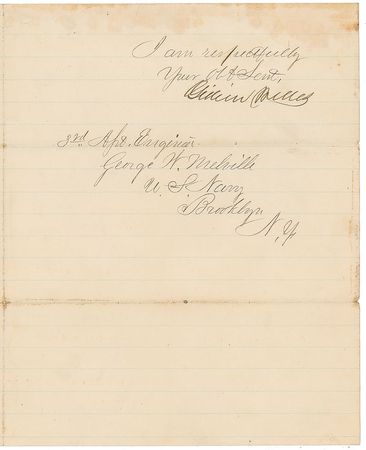 I am respectfully
Your Obt Servt,
Gideon Welles
3rd Asst. Engineer
George W. Melville
U. S. Navy
Brooklyn
N. Y.